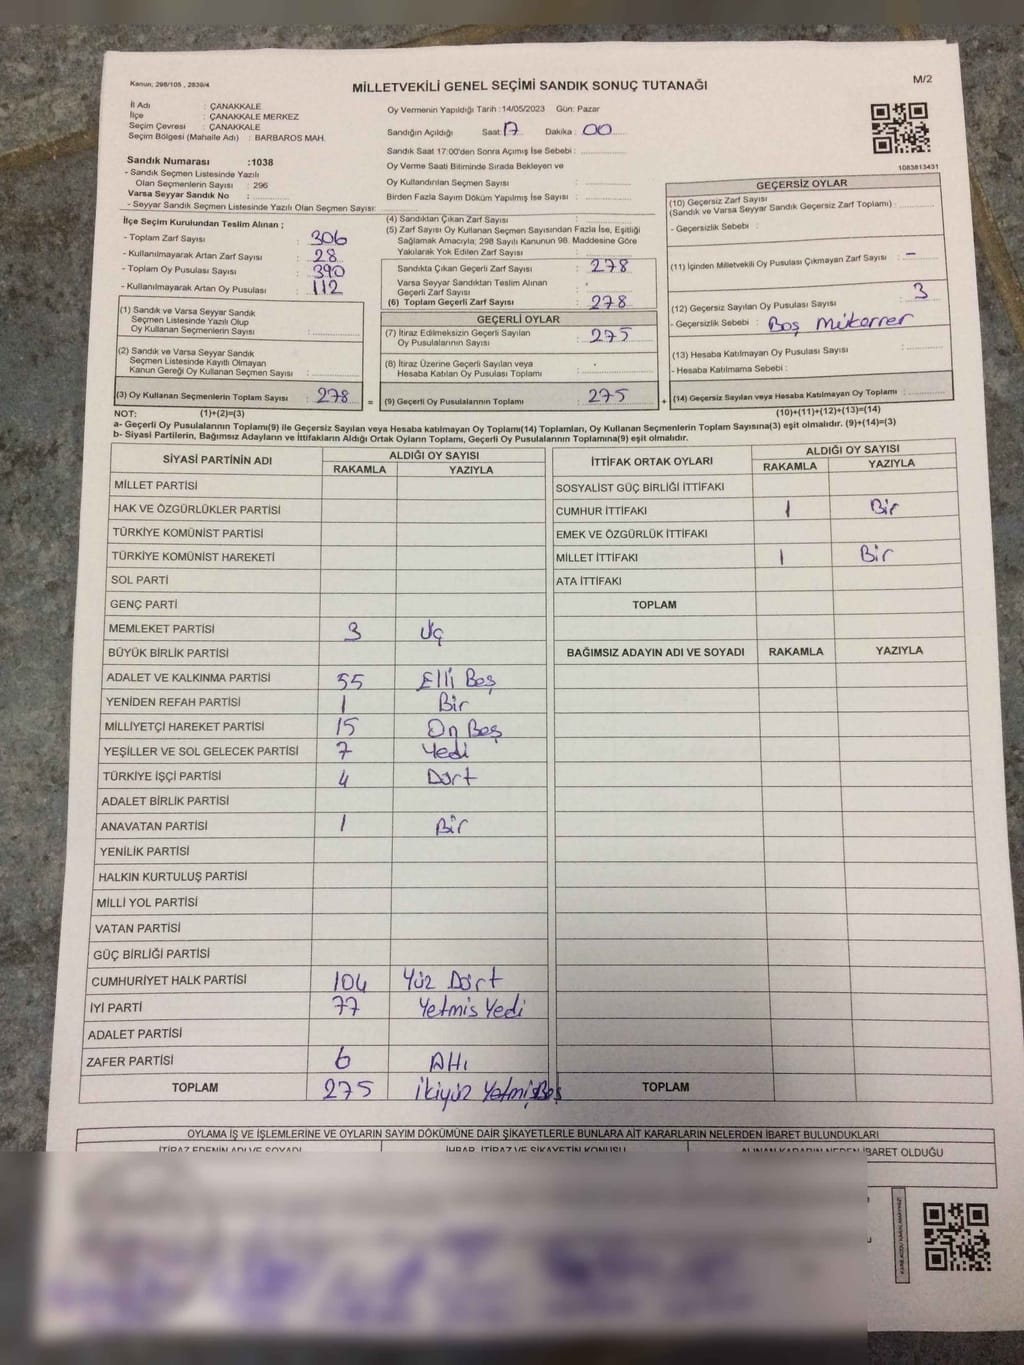 Kanun: 298/105 , 2839/4
MİLLETVEKİLİ GENEL SEÇİMİ SANDIK SONUÇ TUTANAĞI
M/2
İl Adı : ÇANAKKALE
İlçe : ÇANAKKALE MERKEZ
Seçim Çevresi : ÇANAKKALE
Seçim Bölgesi (Mahalle Adı) : BARBAROS MAH.
Sandık Numarası :1038
- Sandık Seçmen Listesinde Yazılı
Olan Seçmenlerin Sayısı : 296
Varsa Seyyar Sandık No :
- Seyyar Sandık Seçmen Listesinde Yazılı Olan Seçmen Sayısı:
İlçe Seçim Kurulundan Teslim Alınan ;
- Toplam Zarf Sayısı : 306
- Kullanılmayarak Artan Zarf Sayısı : 28
- Toplam Oy Pusulası Sayısı : 390
- Kullanılmayarak Artan Oy Pusulası : 112
(1) Sandık ve Varsa Seyyar Sandık
Seçmen Listesinde Yazılı Olup
Oy Kullanan Seçmenlerin Sayısı :
(2) Sandık ve Varsa Seyyar Sandık
Seçmen Listesinde Kayıtlı Olmayan
Kanun Gereği Oy Kullanan Seçmen Sayısı :
(3) Oy Kullanan Seçmenlerin Toplam Sayısı : 278 =
Oy Vermenin Yapıldığı Tarih :14/05/2023 Gün: Pazar
Sandığın Açıldığı Saat: 17 Dakika : 00
Sandık Saat 17:00'den Sonra Açımış İse Sebebi :
Oy Verme Saati Bitiminde Sırada Bekleyen ve
Oy Kullandırılan Seçmen Sayısı :
Birden Fazla Sayım Döküm Yapılmış İse Sayısı :
(4) Sandıktan Çıkan Zarf Sayısı :
(5) Zarf Sayısı Oy Kullanan Seçmen Sayısından Fazla İse, Eşitliği
Sağlamak Amacıyla; 298 Sayılı Kanunun 98. Maddesine Göre
Yakılarak Yok Edilen Zarf Sayısı :
Sandıkta Çıkan Geçerli Zarf Sayısı : 278
Varsa Seyyar Sandıktan Teslim Alınan
Geçerli Zarf Sayısı :
(6) Toplam Geçerli Zarf Sayısı : 278
GEÇERLİ OYLAR
(7) İtiraz Edilmeksizin Geçerli Sayılan
Oy Pusulalarının Sayısı : 275
(8) İtiraz Üzerine Geçerli Sayılan veya
Hesaba Katılan Oy Pusulası Toplamı :
(9) Geçerli Oy Pusulalarının Toplamı : 275 +
1083813431
GEÇERSİZ OYLAR
(10) Geçersiz Zarf Sayısı
(Sandık ve Varsa Seyyar Sandık Geçersiz Zarf Toplamı) :
- Geçersizlik Sebebi :
(11) İçinden Milletvekili Oy Pusulası Çıkmayan Zarf Sayısı : –
(12) Geçersiz Sayılan Oy Pusulası Sayısı : 3
- Geçersizlik Sebebi : Boş Mükerrer
(13) Hesaba Katılmayan Oy Pusulası Sayısı :
- Hesaba Katılmama Sebebi :
(14) Geçersiz Sayılan veya Hesaba Katılmayan Oy Toplamı :
NOT: (1)+(2)=(3)
(10)+(11)+(12)+(13)=(14)
a- Geçerli Oy Pusulalarının Toplamı(9) ile Geçersiz Sayılan veya Hesaba katılmayan Oy Toplamı(14) Toplamları, Oy Kullanan Seçmenlerin Toplam Sayısına(3) eşit olmalıdır. (9)+(14)=(3)
b- Siyasi Partilerin, Bağımsız Adayların ve İttifakların Aldığı Ortak Oyların Toplamı, Geçerli Oy Pusulalarının Toplamına(9) eşit olmalıdır.
SİYASİ PARTİNİN ADI ALDIĞI OY SAYISI
RAKAMLA YAZIYLA
MİLLET PARTİSİ
HAK VE ÖZGÜRLÜKLER PARTİSİ
TÜRKİYE KOMÜNİST PARTİSİ
TÜRKİYE KOMÜNİST HAREKETİ
SOL PARTİ
GENÇ PARTİ
MEMLEKET PARTİSİ 3 Üç
BÜYÜK BİRLİK PARTİSİ
ADALET VE KALKINMA PARTİSİ 55 Elli Beş
YENİDEN REFAH PARTİSİ 1 Bir
MİLLİYETÇİ HAREKET PARTİSİ 15 On Beş
YEŞİLLER VE SOL GELECEK PARTİSİ 7 Yedi
TÜRKİYE İŞÇİ PARTİSİ 4 Dört
ADALET BİRLİK PARTİSİ
ANAVATAN PARTİSİ 1 Bir
YENİLİK PARTİSİ
HALKIN KURTULUŞ PARTİSİ
MİLLİ YOL PARTİSİ
VATAN PARTİSİ
GÜÇ BİRLİĞİ PARTİSİ
CUMHURİYET HALK PARTİSİ 104 Yüz Dört
İYİ PARTİ 77 Yetmis Yedi
ADALET PARTİSİ
ZAFER PARTİSİ 6 Altı
TOPLAM 275 İkiyüz Yetmiş Beş
İTTİFAK ORTAK OYLARI ALDIĞI OY SAYISI
RAKAMLA YAZIYLA
SOSYALİST GÜÇ BİRLİĞİ İTTİFAKI
CUMHUR İTTİFAKI 1 Bir
EMEK VE ÖZGÜRLÜK İTTİFAKI
MİLLET İTTİFAKI 1 Bir
ATA İTTİFAKI
TOPLAM
BAĞIMSIZ ADAYIN ADI VE SOYADI RAKAMLA YAZIYLA
TOPLAM
OYLAMA İŞ VE İŞLEMLERİNE VE OYLARIN SAYIM DÖKÜMÜNE DAİR ŞİKAYETLERLE BUNLARA AİT KARARLARIN NELERDEN İBARET BULUNDUKLARI
İTİRAZ EDENİN ADI VE SOYADI İHBAR, İTİRAZ VE ŞİKAYETİN KONUSU ALINAN KARARIN NEDEN İBARET OLDUĞU